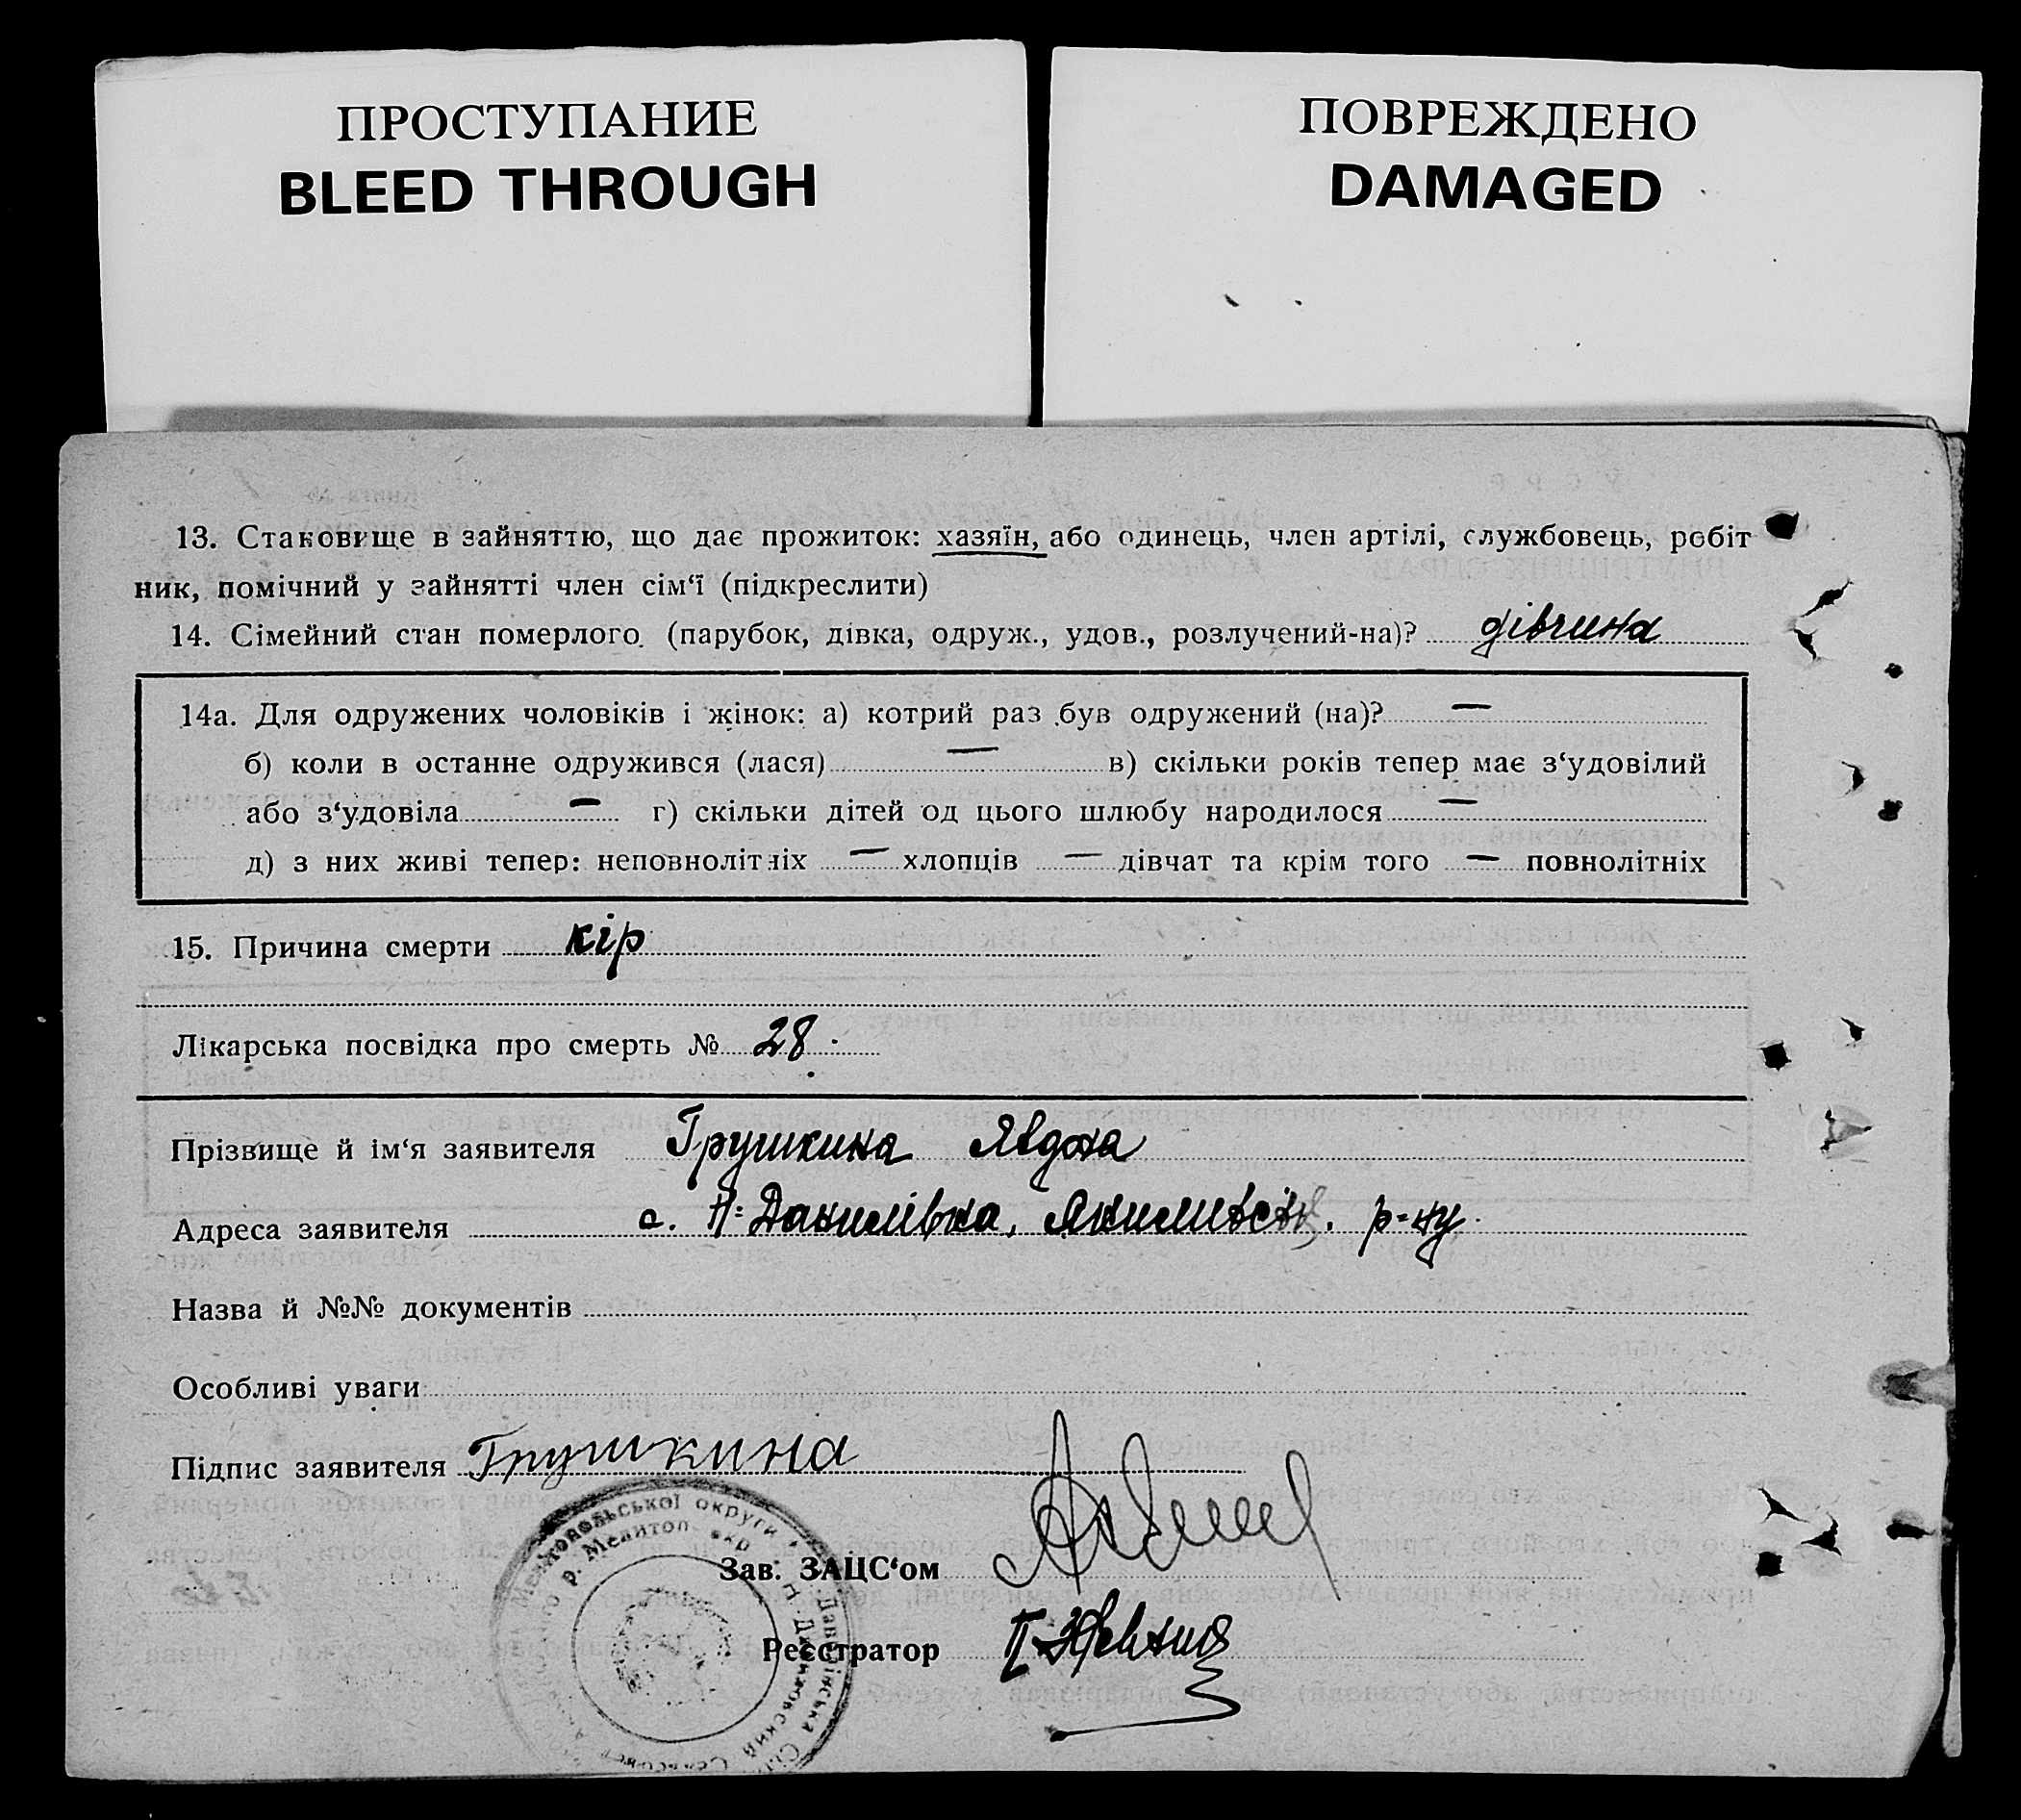 ПРОСТУПАНИЕ
BLEED THROUGH
ПОВРЕЖДЕНО
DAMAGED
13. Становище в зайняттю, що дає прожиток: хазяїн, або одинець, член артілі, службовець, робіт
ник, помічний у зайнятті член сім‘ї (підкреслити)
14. Сімейний стан померлого (парубок, дівка, одруж., удов., розлучений-на)? дівчина
14а. Для одружених чоловіків і жінок: а) котрий раз був одружений (на)? —
б) коли в останне одружився (лася) — в) скільки років тепер має з‘удовілий
або з‘удовіла — г) скільки дітей од цього шлюбу народилося —
д) з них живі тепер: неповнолітніх — хлопців — дівчат та крім того — повнолітніх
15. Причина смерти кір
Лікарська посвідка про смерть № 28.
Прізвище й ім‘я заявителя Грушкина Явдоха
Адреса заявителя с. Н-Данилівка, р-ну
Назва й №№ документів
Особливі уваги
Підпис заявителя Грушкина
Зав. ЗАЦС‘ом
Реєстратор
Мелітопольської округи
р. Мелитоп окр